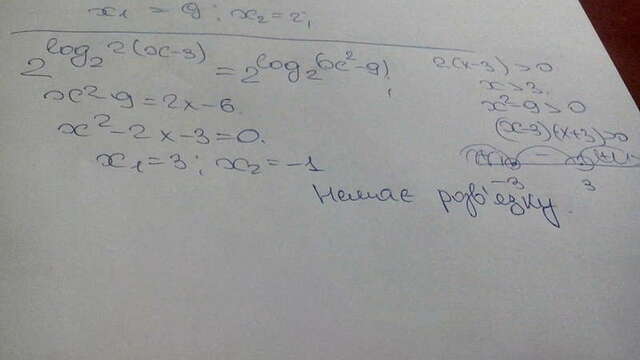 x₁ = 9 ; x₂ = 2,
2^(log₂ 2(x-3)) = 2^(log₂ (x²-9)),
x²-9 = 2x-6.
x²-2x-3=0.
x₁=3 ; x₂=-1
2(x-3)>0
x>3.
x²-9>0
(x-3)(x+3)>0
-3 3
Немає розв'язку.